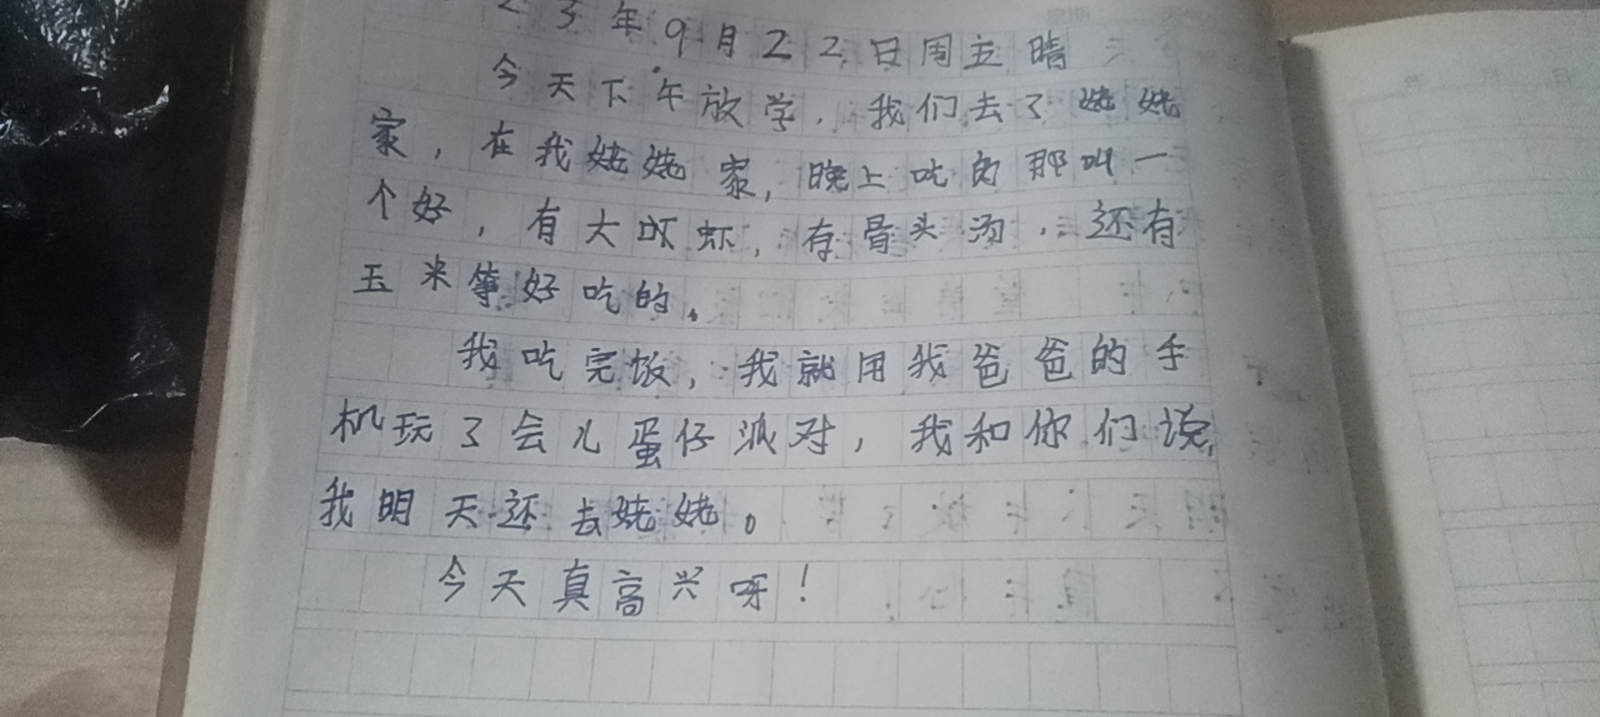 23年9月22日周五晴
今天下午放学，我们去了姥姥
家，在我姥姥家，晚上吃的那叫一
个好，有大虾虾，有骨头汤，还有
玉米等好吃的。
我吃完饭，我就用我爸爸的手
机玩了会儿蛋仔派对，我和你们说，
我明天还去姥姥。
今天真高兴呀！